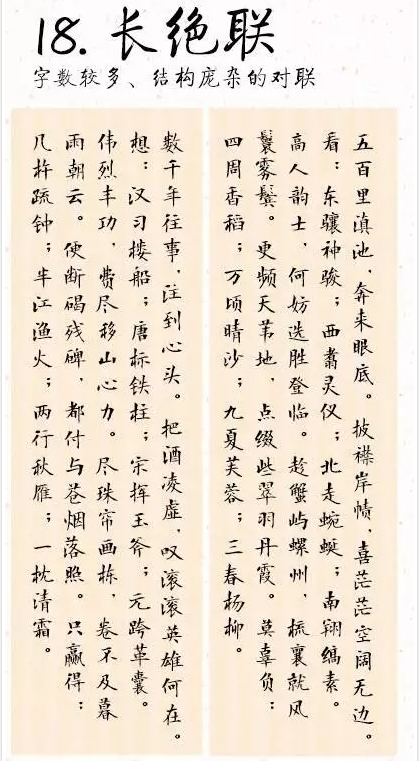 18. 长绝联
字数较多、结构庞杂的对联
五百里滇池,奔来眼底。披襟岸帻,喜茫茫空阔无边。
看:东骧神骏;西翥灵仪;北走蜿蜒;南翔缟素。
高人韵士,何妨选胜登临。趁蟹屿螺州,梳襄就风
鬟雾鬓。更频天苇地,点缀些翠羽丹霞。莫辜负:
四周香稻;万顷晴沙;九夏芙蓉;三春杨柳。
数千年往事,注到心头。把酒凌虚,叹滚滚英雄何在。
想:汉习楼船;唐标铁柱;宋挥玉斧;元跨革囊。
伟烈丰功,费尽移山心力。尽珠帘画栋,卷不及暮
雨朝云。便断碣残碑,都付与苍烟落照。只赢得:
几杵疏钟;半江渔火;两行秋雁;一枕清霜。